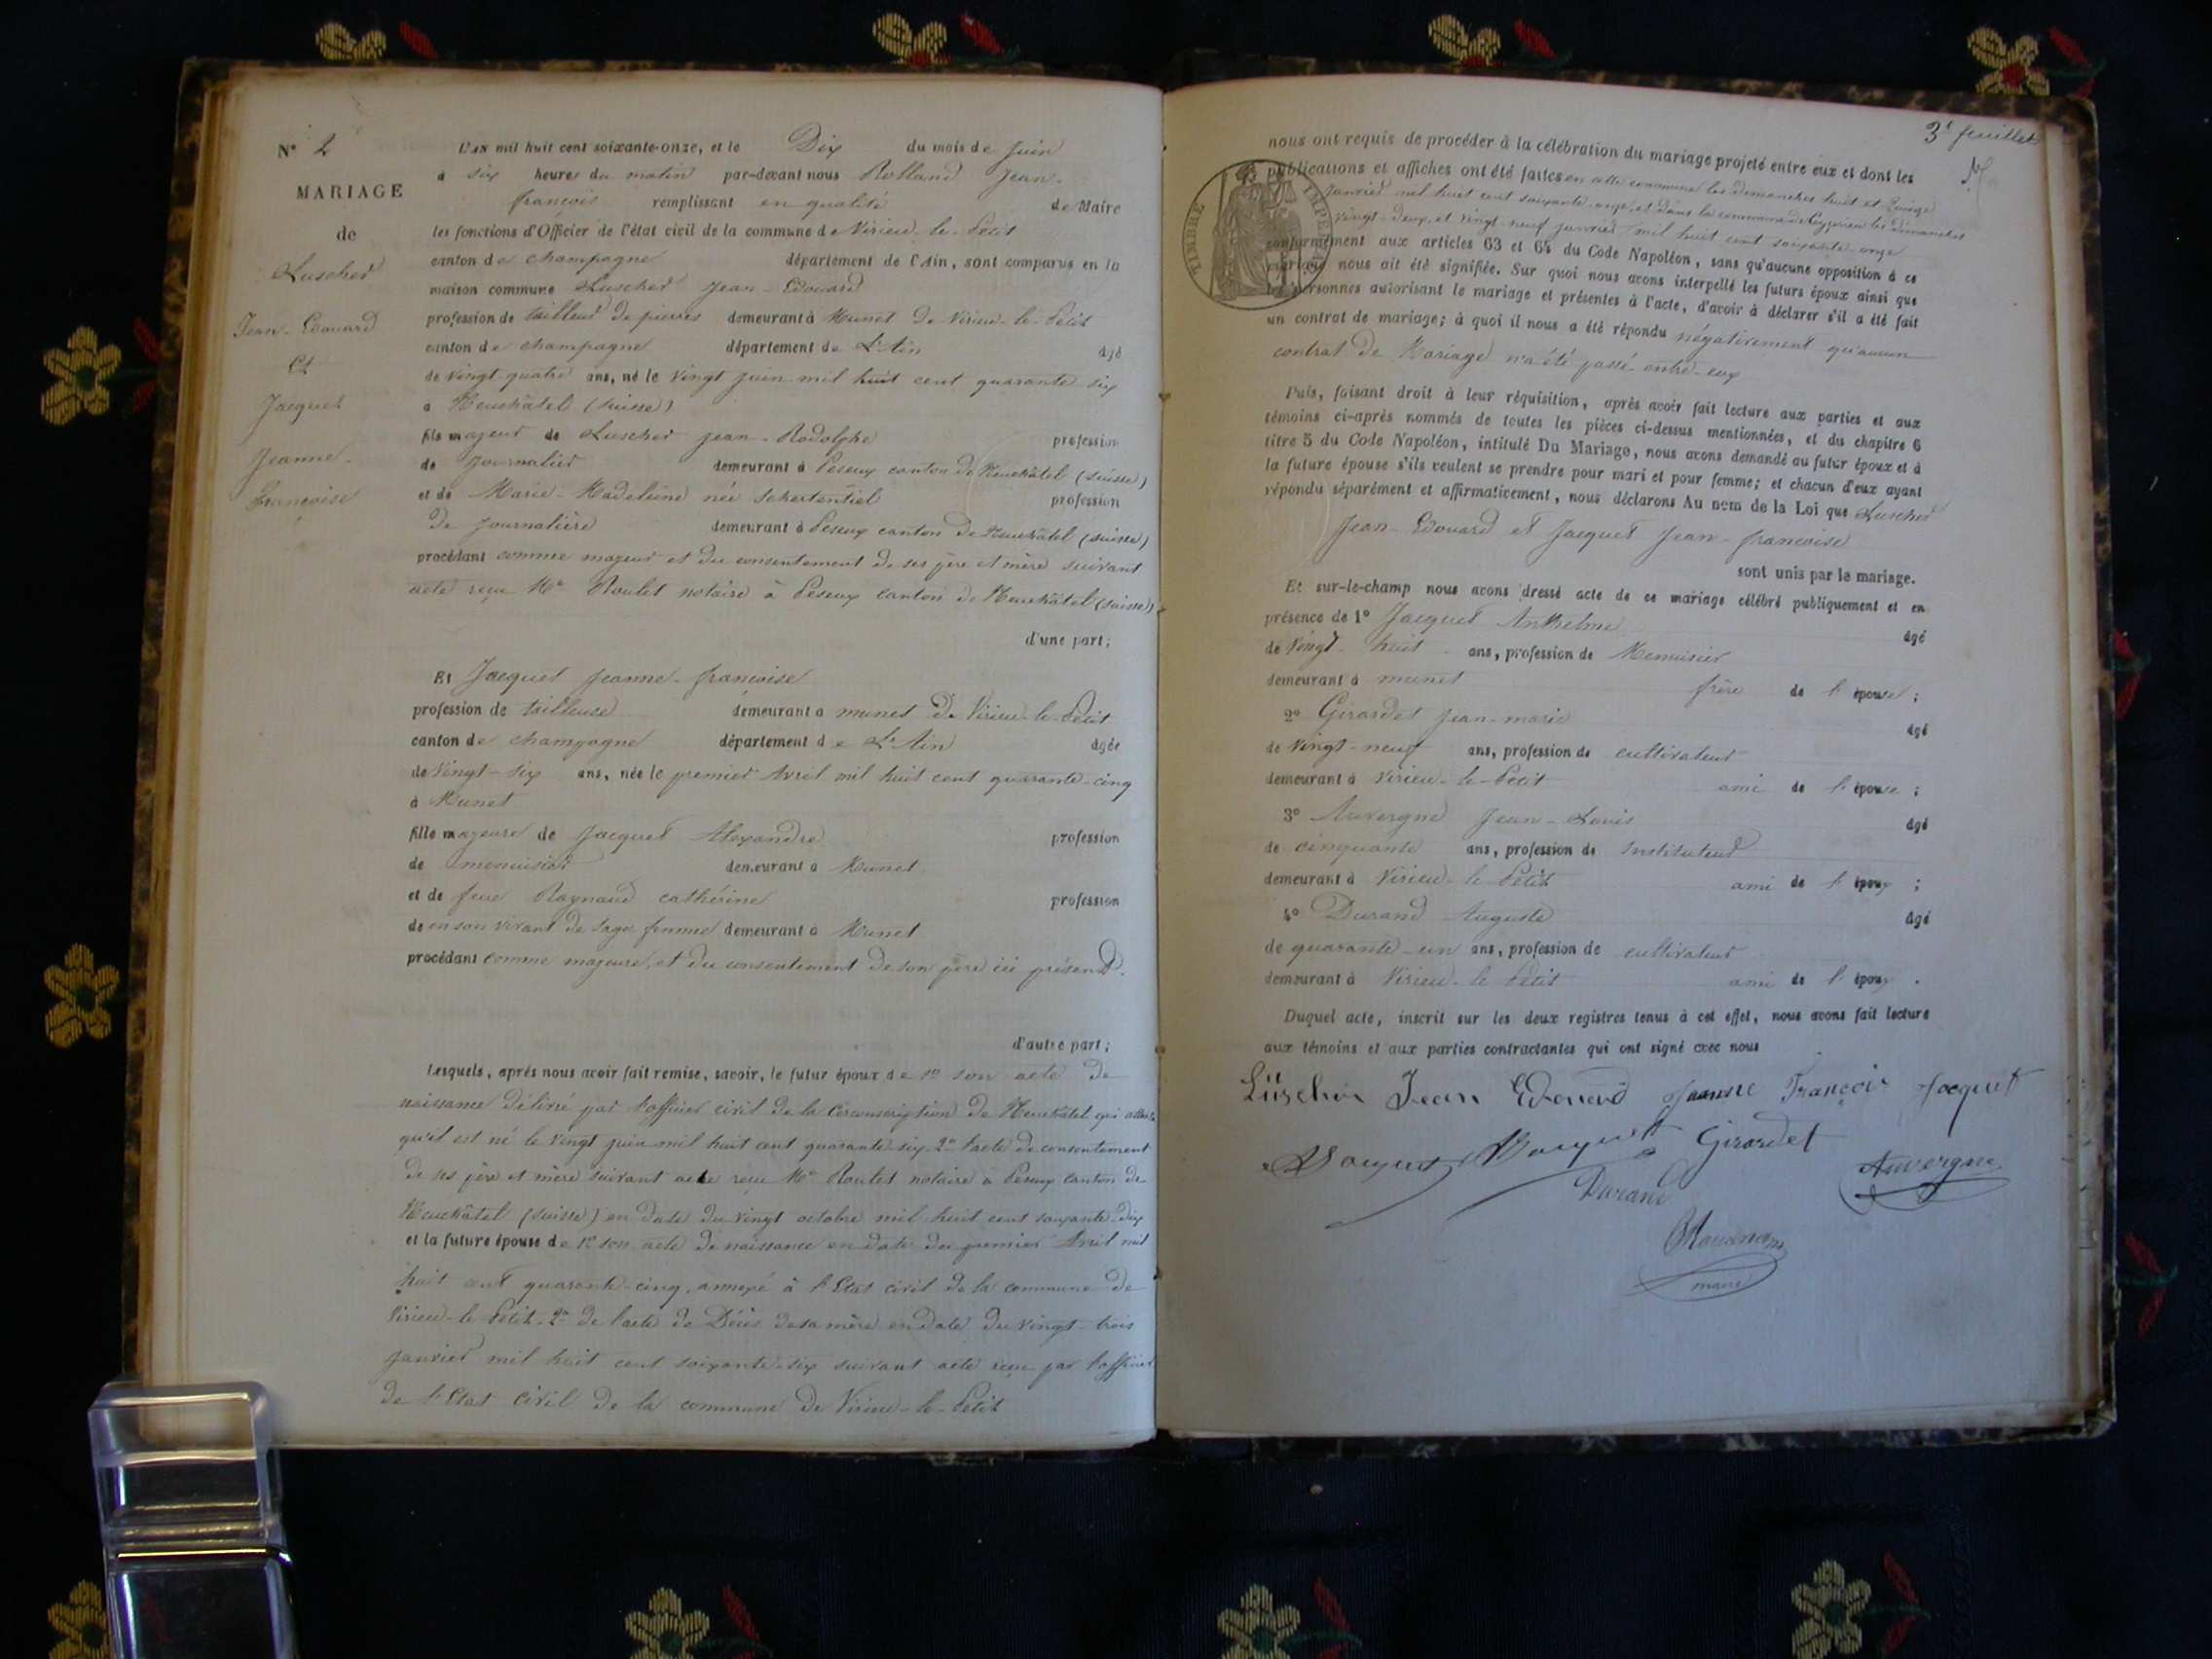 N° 2
MARIAGE
de
Luscher
Jean-Edouard
Et
Jacquet
Jeanne-
françoise
L'AN mil huit cent soixante-onze, et le Dix du mois de Juin
à six heures du matin par-devant nous Rolland Jean-
françois remplissant en qualité de Maire
les fonctions d'Officier de l'état civil de la commune de Virieu-le-Petit
canton de champagne département de l'Ain, sont comparus en la
maison commune Luscher Jean-Edouard
profession de tailleur de pierres demeurant à Munet De Virieu-le-Petit
canton de champagne département de L'Ain âgé
de vingt-quatre ans, né le vingt juin mil huit cent quarante-six
à Neuchâtel (Suisse)
fils majeur de Luscher Jean-Rodolphe profession
de journalier demeurant à Peseux canton de Neuchâtel (Suisse)
et de Marie-Madeleine née profession
De journalière demeurant à Peseux canton De Neuchâtel (Suisse)
procédant comme majeur et du consentement de ses père et mère suivant
acte reçu Me Roulet notaire à Peseux canton de Neuchâtel (Suisse)
d'une part;
Et Jacquet jeanne-francoise
profession de tailleuse demeurant à munet De Virieu-le-Petit
canton de champagne département de L'Ain âgée
de vingt-six ans, née le premier Avril mil huit cent quarante-cinq
à Munet
fille majeure de Jacquet Alexandre profession
de menuisier demeurant à Munet
et de feue Raynaud cathérine profession
de en son vivant de sage femme demeurant à Munet
procédant comme majeure, et du consentement de son père ici présent.
d'autre part;
Lesquels, après nous avoir fait remise, savoir, le futur époux de 1° son acte de
naissance délivré par l'officier civil de la circonscription de Neuchâtel qui atteste
qu'il est né le vingt juin mil huit cent quarante-six. 2° l'acte de consentement
de ses père et mère suivant acte reçu Me Roulet notaire à Peseux canton de
Neuchâtel (Suisse) en date du vingt octobre mil huit cent soixante-dix
et la future épouse de 1° son acte de naissance en date du premier Avril mil
huit cent quarante-cinq, annexé à l'Etat civil de la commune de
Virieu-le-Petit. 2° de l'acte de Décès de sa mère en date du vingt-trois
janvier mil huit cent soixante-six suivant acte reçu par l'officier
de l'Etat civil de la commune de Virieu-le-Petit
3e feuillet
nous ont requis de procéder à la célébration du mariage projeté entre eux et dont les
publications et affiches ont été faites en cette commune les dimanches huit et quinze
janvier mil huit cent soixante-onze, et dans la commune de Ceyzerieu les dimanches
vingt-deux et vingt-neuf janvier mil huit cent soixante-onze
TIMBRE IMPERIAL
conformément aux articles 63 et 64 du Code Napoléon, sans qu'aucune opposition à ce
mariage nous ait été signifiée. Sur quoi nous avons interpellé les futurs époux ainsi que
les personnes autorisant le mariage et présentes à l'acte, d'avoir à déclarer s'il a été fait
un contrat de mariage; à quoi il nous a été répondu négativement qu'aucun
contrat De Mariage n'a été passé entre-eux
Puis, faisant droit à leur réquisition, après avoir fait lecture aux parties et aux
témoins ci-après nommés de toutes les pièces ci-dessus mentionnées, et du chapitre 6
titre 5 du Code Napoléon, intitulé Du Mariage, nous avons demandé au futur époux et à
la future épouse s'ils veulent se prendre pour mari et pour femme; et chacun d'eux ayant
répondu séparément et affirmativement, nous déclarons Au nom de la Loi que Luscher
Jean-Edouard et Jacquet Jean-francoise
sont unis par le mariage.
Et sur-le-champ nous avons dressé acte de ce mariage célébré publiquement et en
présence de 1° Jacquet Anthelme âgé
de vingt-huit ans, profession de Menuisier
demeurant à munet frère de l'épouse;
2° Girardet jean-marie âgé
de vingt-neuf ans, profession de cultivateur
demeurant à Virieu-le-Petit ami de l'épouse;
3° Auvergne Jean-Louis âgé
de cinquante ans, profession de Instituteur
demeurant à Virieu-le-Petit ami de l'époux;
4° Durand Auguste âgé
de quarante-un ans, profession de cultivateur
demeurant à Virieu-le-Petit ami de l'époux.
Duquel acte, inscrit sur les deux registres tenus à cet effet, nous avons fait lecture
aux témoins et aux parties contractantes qui ont signé avec nous
Lüscher Jean Edouard Jeanne François Jacquet
Jacquet Jacquet Girardet
Durand Auvergne
maire